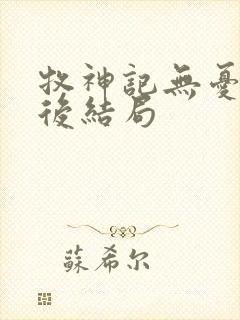 牧神記無憂
後結局
蘇希尔